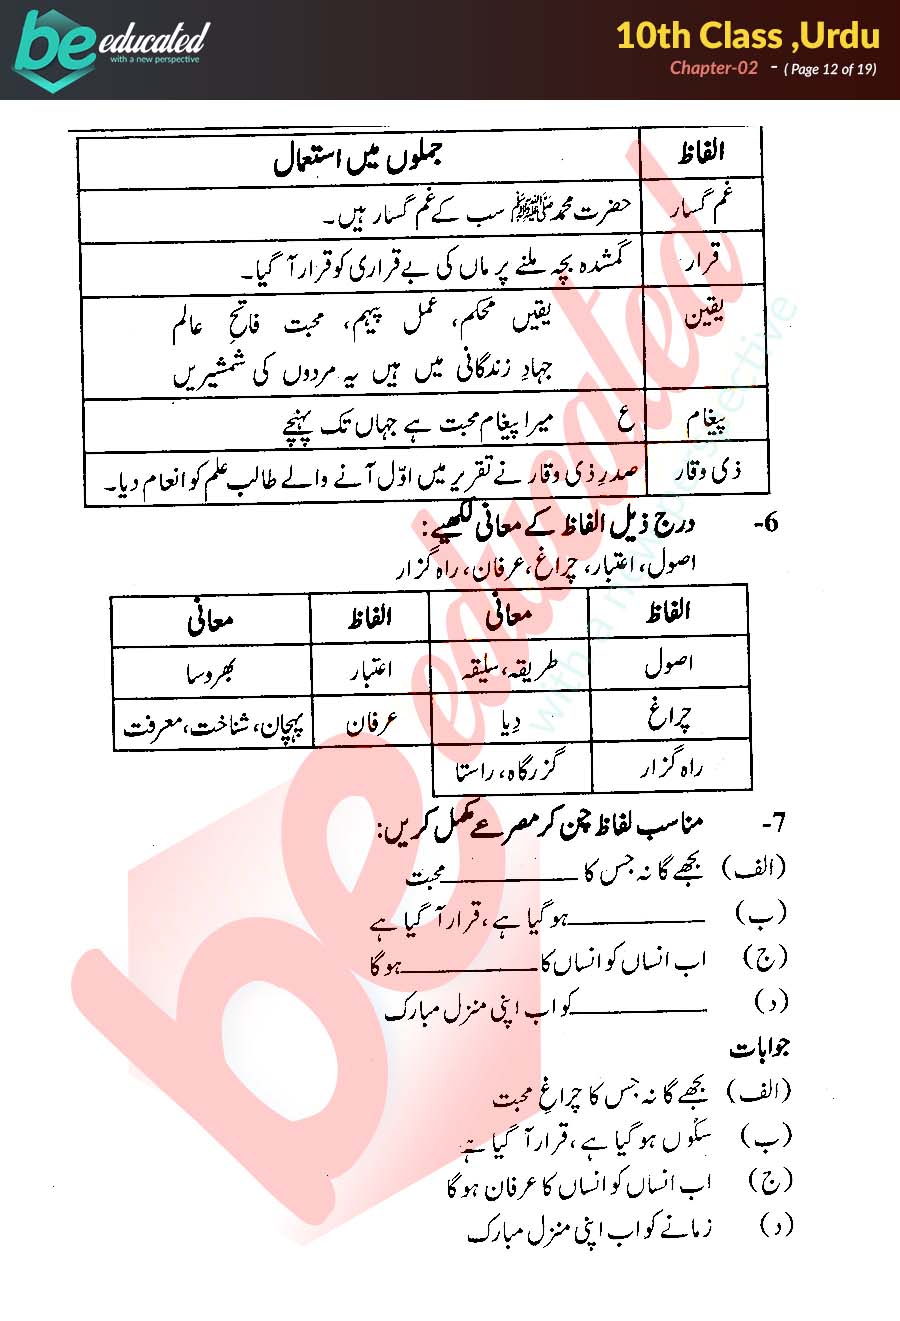 be educated
with a new perspective
10th Class ,Urdu
Chapter-02 - ( Page 12 of 19)
الفاظ جملوں میں استعمال
غم گسار حضرت محمد ﷺ سب کے غم گسار ہیں۔
قرار گمشدہ بچہ ملنے پر ماں کی بے قراری کو قرار آ گیا۔
یقین یقیں محکم، عمل پیہم، محبت فاتحِ عالم
جہادِ زندگانی میں ہیں یہ مردوں کی شمشیریں
پیغام ع میرا پیغام محبت ہے جہاں تک پہنچے
ذی وقار صدرِ ذی وقار نے تقریر میں اوّل آنے والے طالب علم کو انعام دیا۔
6- درج ذیل الفاظ کے معانی لکھیے:
اصول، اعتبار، چراغ، عرفان، راہ گزار
الفاظ معانی الفاظ معانی
اصول طریقہ، سلیقہ اعتبار بھروسا
چراغ دِیا عرفان پہچان، شناخت، معرفت
راہ گزار گزرگاہ، راستا
7- مناسب لفاظ چن کر مصرعے مکمل کریں:
(الف) بجھے گا نہ جس کا ________ محبت
(ب) ________ ہو گیا ہے، قرار آ گیا ہے
(ج) اب انساں کو انساں کا ________ ہو گا
(د) ________ کو اب اپنی منزل مبارک
جوابات
(الف) بجھے گا نہ جس کا چراغِ محبت
(ب) سکوں ہو گیا ہے، قرار آ گیا ہے
(ج) اب انساں کو انساں کا عرفان ہو گا
(د) زمانے کو اب اپنی منزل مبارک
be educated
with a new perspective